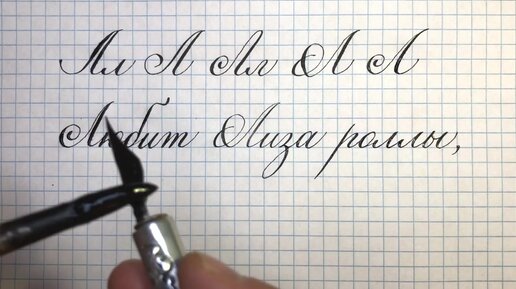 Лл Л Лл Л Л
Любит Лиза роллы,